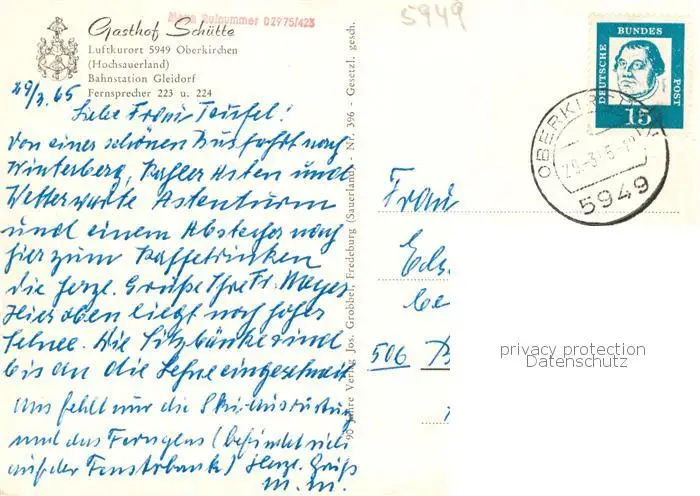 Neue Rufnummer 02975/423
5949
Gasthof Schütte
Luftkurort 5949 Oberkirchen
(Hochsauerland)
Bahnstation Gleidorf
Fernsprecher 223 u. 224
29/3.65
Liebe Frau Teufel!
Von einer schönen Busfahrt nach
Winterberg, Kahler Asten und
Wetterwarte Astenturm
und einem Abstecher nach
hier zum Kaffetrinken
die herzl. Grüße Ihre Fr. Meyer.
Hier oben liegt noch hoher
Schnee. Die Sitzbänke sind
bis an die Lehne eingeschneit
Uns fehlt nur die Skiausrüstung
und das Fernglas (befindet sich
auf der Fensterbank) Herzl. Gruß
M.M.
90 Jahre Verlag Jos. Grobbel, Fredeburg (Sauerland) - Nr. 396 - Gesetzl. gesch.
DEUTSCHE BUNDESPOST
15
OBERKIRCHEN
5949
Frau
506
privacy protection
Datenschutz